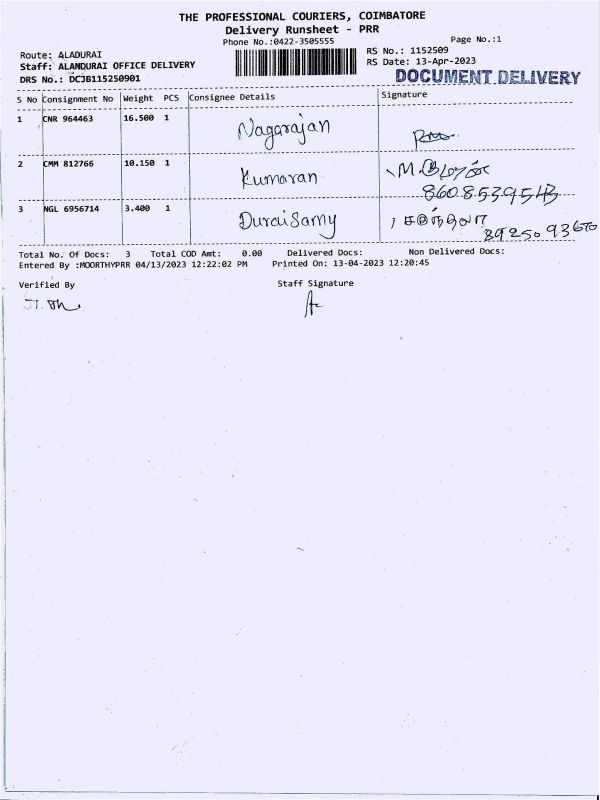 THE PROFESSIONAL COURIERS, COIMBATORE
Delivery Runsheet - PRR
Phone No.:0422-3505555
Page No.:1
Route: ALADURAI
RS No.: 1152509
Staff: ALANDURAI OFFICE DELIVERY
RS Date: 13-Apr-2023
DRS No.: DCJB115250901
DOCUMENT DELIVERY
S No Consignment No Weight PCS Consignee Details Signature
1 CNR 964463 16.500 1 Nagarajan
2 CMM 812766 10.150 1 Kumaran
8608539543
3 NGL 6956714 3.400 1 DuraiSamy
Total No. Of Docs: 3 Total COD Amt: 0.00 Delivered Docs: Non Delivered Docs:
Entered By :MOORTHYPRR 04/13/2023 12:22:02 PM Printed On: 13-04-2023 12:20:45
Verified By Staff Signature